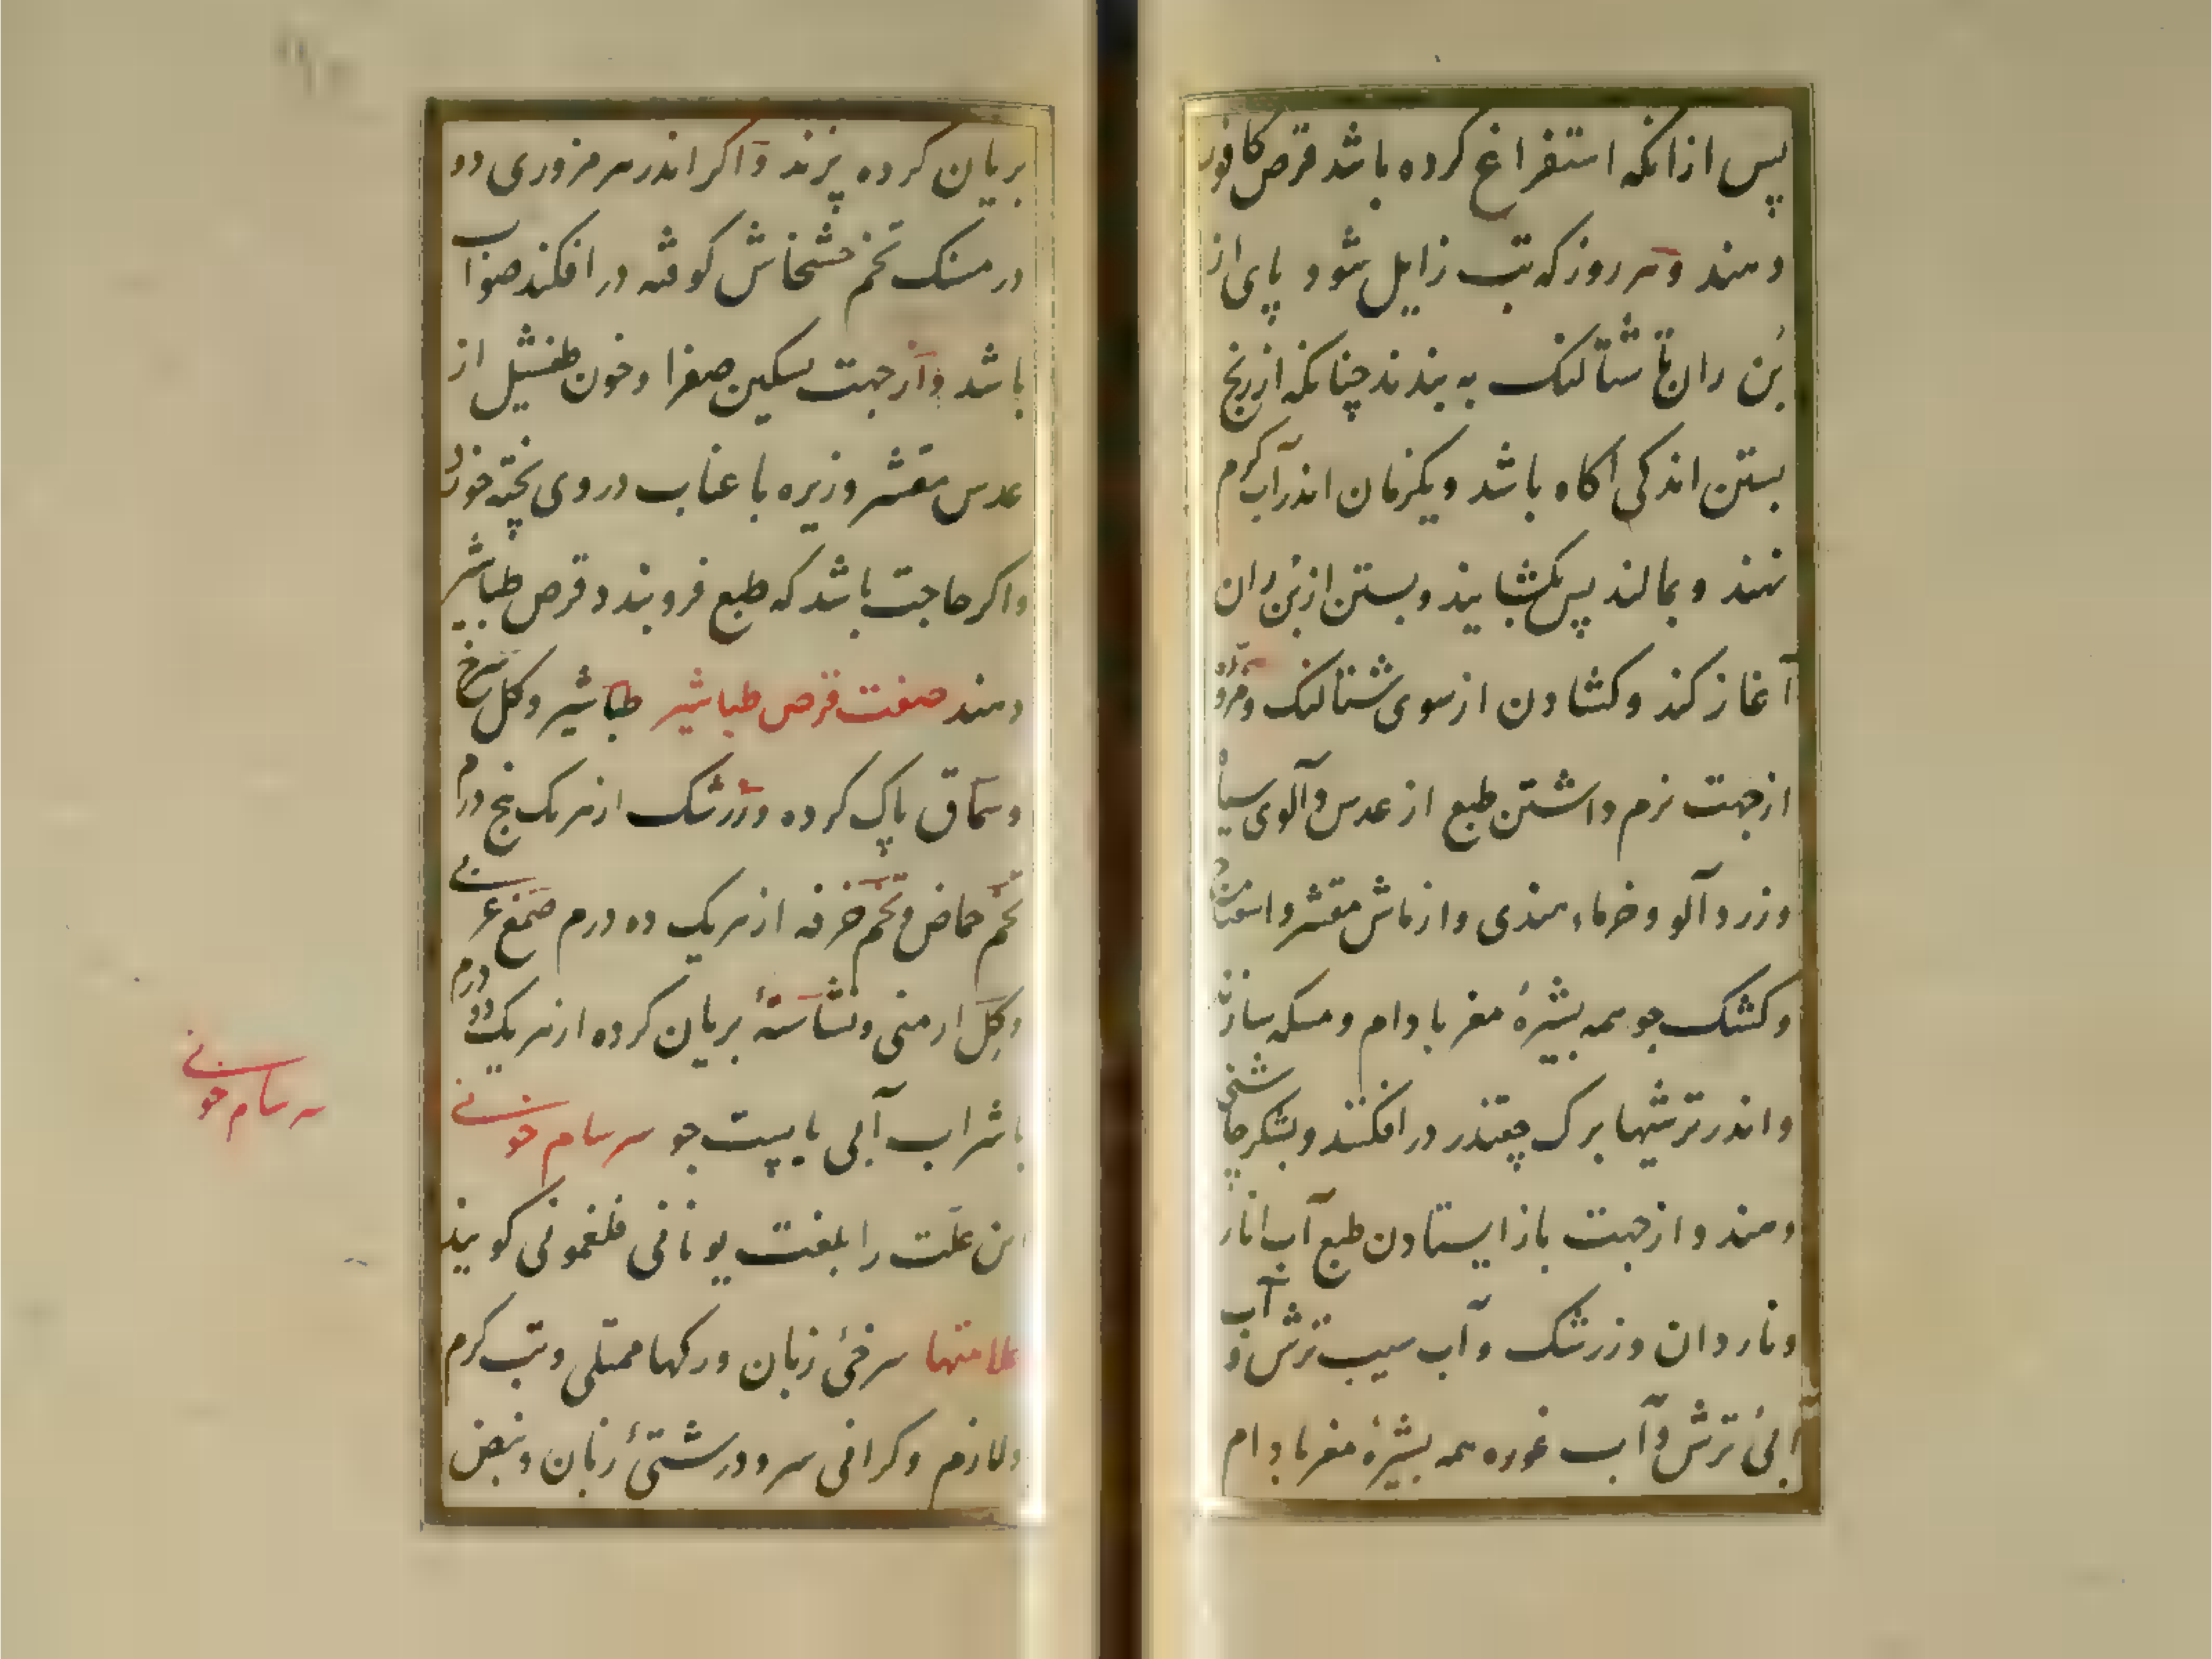 پس ازانکه استفراغ کرده باشد قرص کافور
دهند و هر روز که تب زایل شود پای از
بُن ران تا شتالنک به بندند چنانکه از رنج
بستن اندکی آکاه باشد و یکزمان اندر آب کرم
نهند و بمالند پس بکشایند و بستن از بُن ران
آغاز کند و کشادن از سوی شتالنک و مزوّر
ازجهت نرم داشتن طبع از عدس و آلوی سیاه
و زردآلو و خرماء هندی و از ماش مقشر و اسفناخ
و کشک جو همه بشیرهٔ مغز بادام و مسکه سازند
و اندر ترشیها برک چقندر درافکنند و بشکر چاشنی
دهند و ازجهت باز ایستادن طبع آب انار
و ناردان و زرشک و آب سیب ترش و آب
آبیٔ ترش و آب غوره همه بشیرهٔ مغز بادام
بریان کرده پزند و اکر اندر هر مزوری دو
درمسنک تخم خشخاش کوفته درافکند صواب
باشد و از جهت تسکین صفرا و خون طفشیل از
عدس مقشر و زیره با عناب در وی پخته خورد
و اکر حاجت باشد که طبع فرو بندد قرص طباشیر
دهند صفت قرص طباشیر طباشیر و کل سرخ
و سماق پاک کرده و زرشک از هر یک پنج درم
تخم حماض و تخم خرفه از هر یک ده درم صمغ عربی
و کِل ارمنی و نشاستهٔ بریان کرده از هر یک دو درم
با شراب آبی یا بپست جو سرسام خونی
این علّت را بلغت یونانی فلغمونی کویند
علامتها سرخیٔ زبان و رکها ممتلی و تب کرم
و لازم و کرانی سر و درشتیٔ زبان و نبض
سرسام خونی